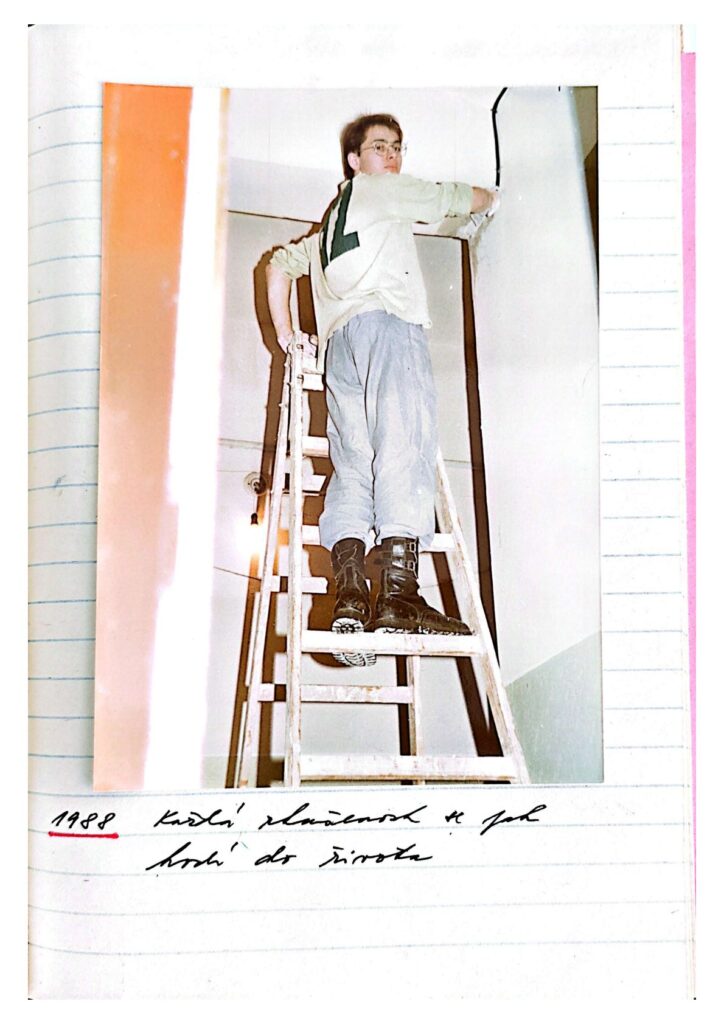 1988 Každá zkušenost se jak
hodí do života